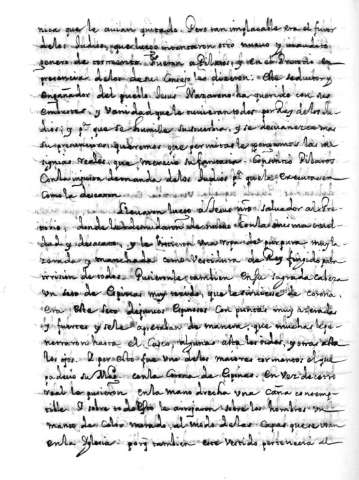 nica que le avian quitado. Pero tan implacable era el furor
de los Judios, que luego inventaron otro nuevo y inaudito
genero de tormento. Fueron a Pilatos, y en el Pretorio en
presencia de los de su Consejo le dixeron: Este seductor y
engañador del pueblo Jesus Nazareno ha querido con sus
embustes, y vanidad que le tuvieran todos por Rey de los Ju-
dios; y pª que se humille su sobervia, y se desvanezca mas
su presuncion queremos que permitas le pongamos las in-
signias reales, que merecio su fantasia. Consintio Pilatos
con la injusta demanda de los Judios pª que la executassen
como la desearon.
Llevaron luego a Jesus nro. salvador al Pre-
torio, donde le desnudaron de nuevo con la misma cruel-
dad y desacato, y le vistieron una ropa de purpura muy la-
zerada y manchada como vestidura de Rey fingido para
irrision de todos. Pusieronle tambien en su sagrada Cabeza
un seto de Espinas muy texido, que le sirviese de corona.
Era este seto de juncos Espinosos con puntas muy azeradas
y fuertes y se le apretaban de manera, que muchas le pe-
netraron hasta el Casco, algunas asta los oidos, y otras asta
los ojos. I por esto fue uno de los maiores tormentos el que
padecio su Magd. con la Corona de Espinas. En vez de cetro
real le pusieron en la mano drecha una Caña contemp-
tible. I sobre todo esto le arrojaron sobre los hombros un
manto de Color morado, al modo de las Capas que se usan
en la Iglesia: porq tambien este Vestido pertenecia al